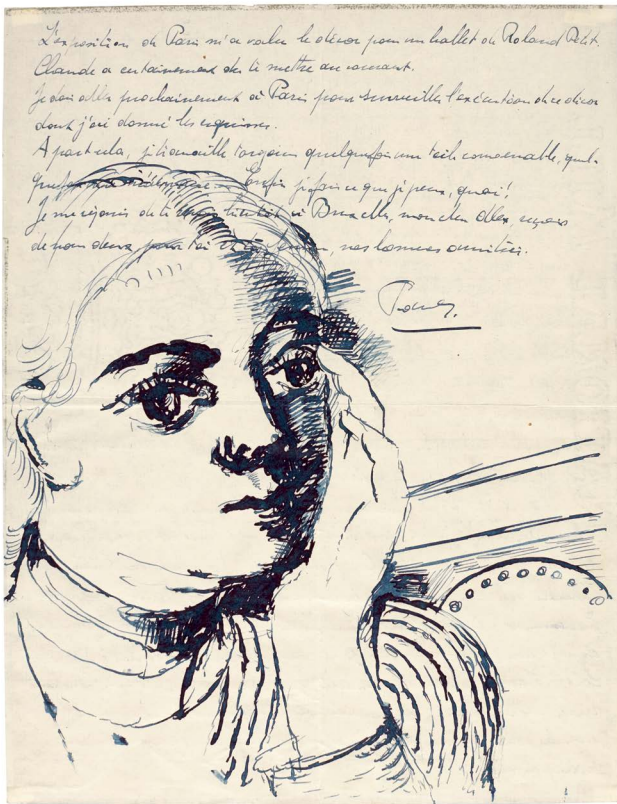 L'exposition de Paris m'a valu le décor pour un ballet de Roland Petit.
Claude a certainement dû te mettre au courant.
Je dois aller prochainement à Paris pour surveiller l'exécution de ce décor
dont j'ai donné les esquisses.
A part cela, je travaille toujours quelquefois une toile convenable, quel-
quefois une médiocre. Enfin je fais ce que je peux, quoi!
Je me réjouis de te voir bientôt à Bruxelles, mon cher Alex, reçois
de nous deux pour toi et, nos bonnes amitiés.
Paul.